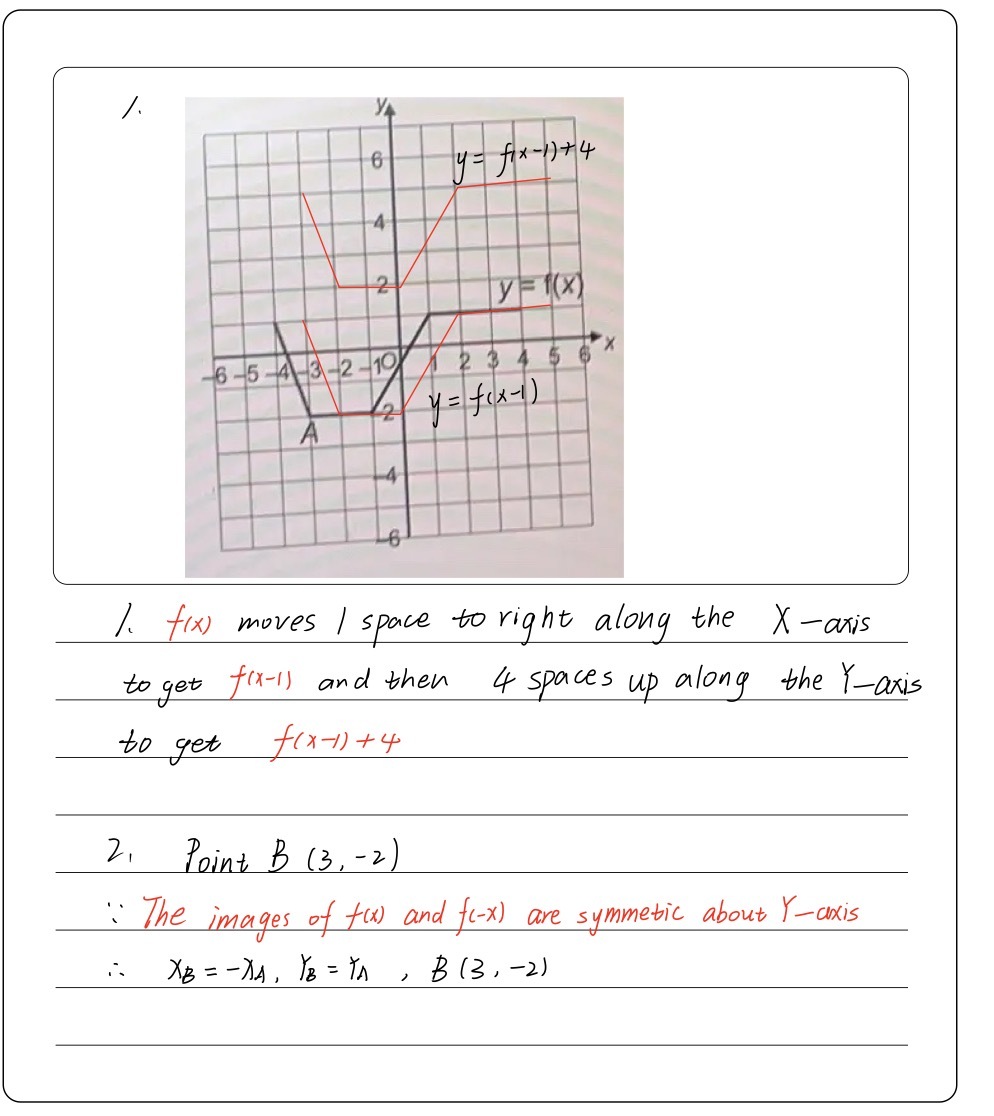 1.
y
6
y = f(x-1)+4
4
2
y = f(x)
-6 -5 -4 -3 -2 -1 0 1 2 3 4 5 6 x
y = f(x-1)
-2
A
-4
-6
1. f(x) moves 1 space to right along the X-axis
to get f(x-1) and then 4 spaces up along the Y-axis
to get f(x-1)+4
2. Point B (3,-2)
∵ The images of f(x) and f(-x) are symmetic about Y-axis
∴ XB = -XA, YB = YA, B (3,-2)